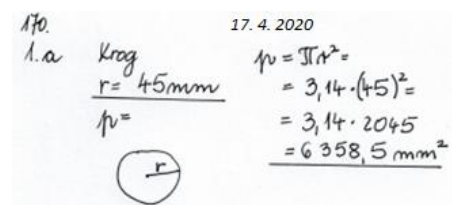 170.
17. 4. 2020
1.a Krog
r = 45mm
p =
r
p = πr² =
= 3,14·(45)² =
= 3,14 · 2045
= 6 358,5 mm²